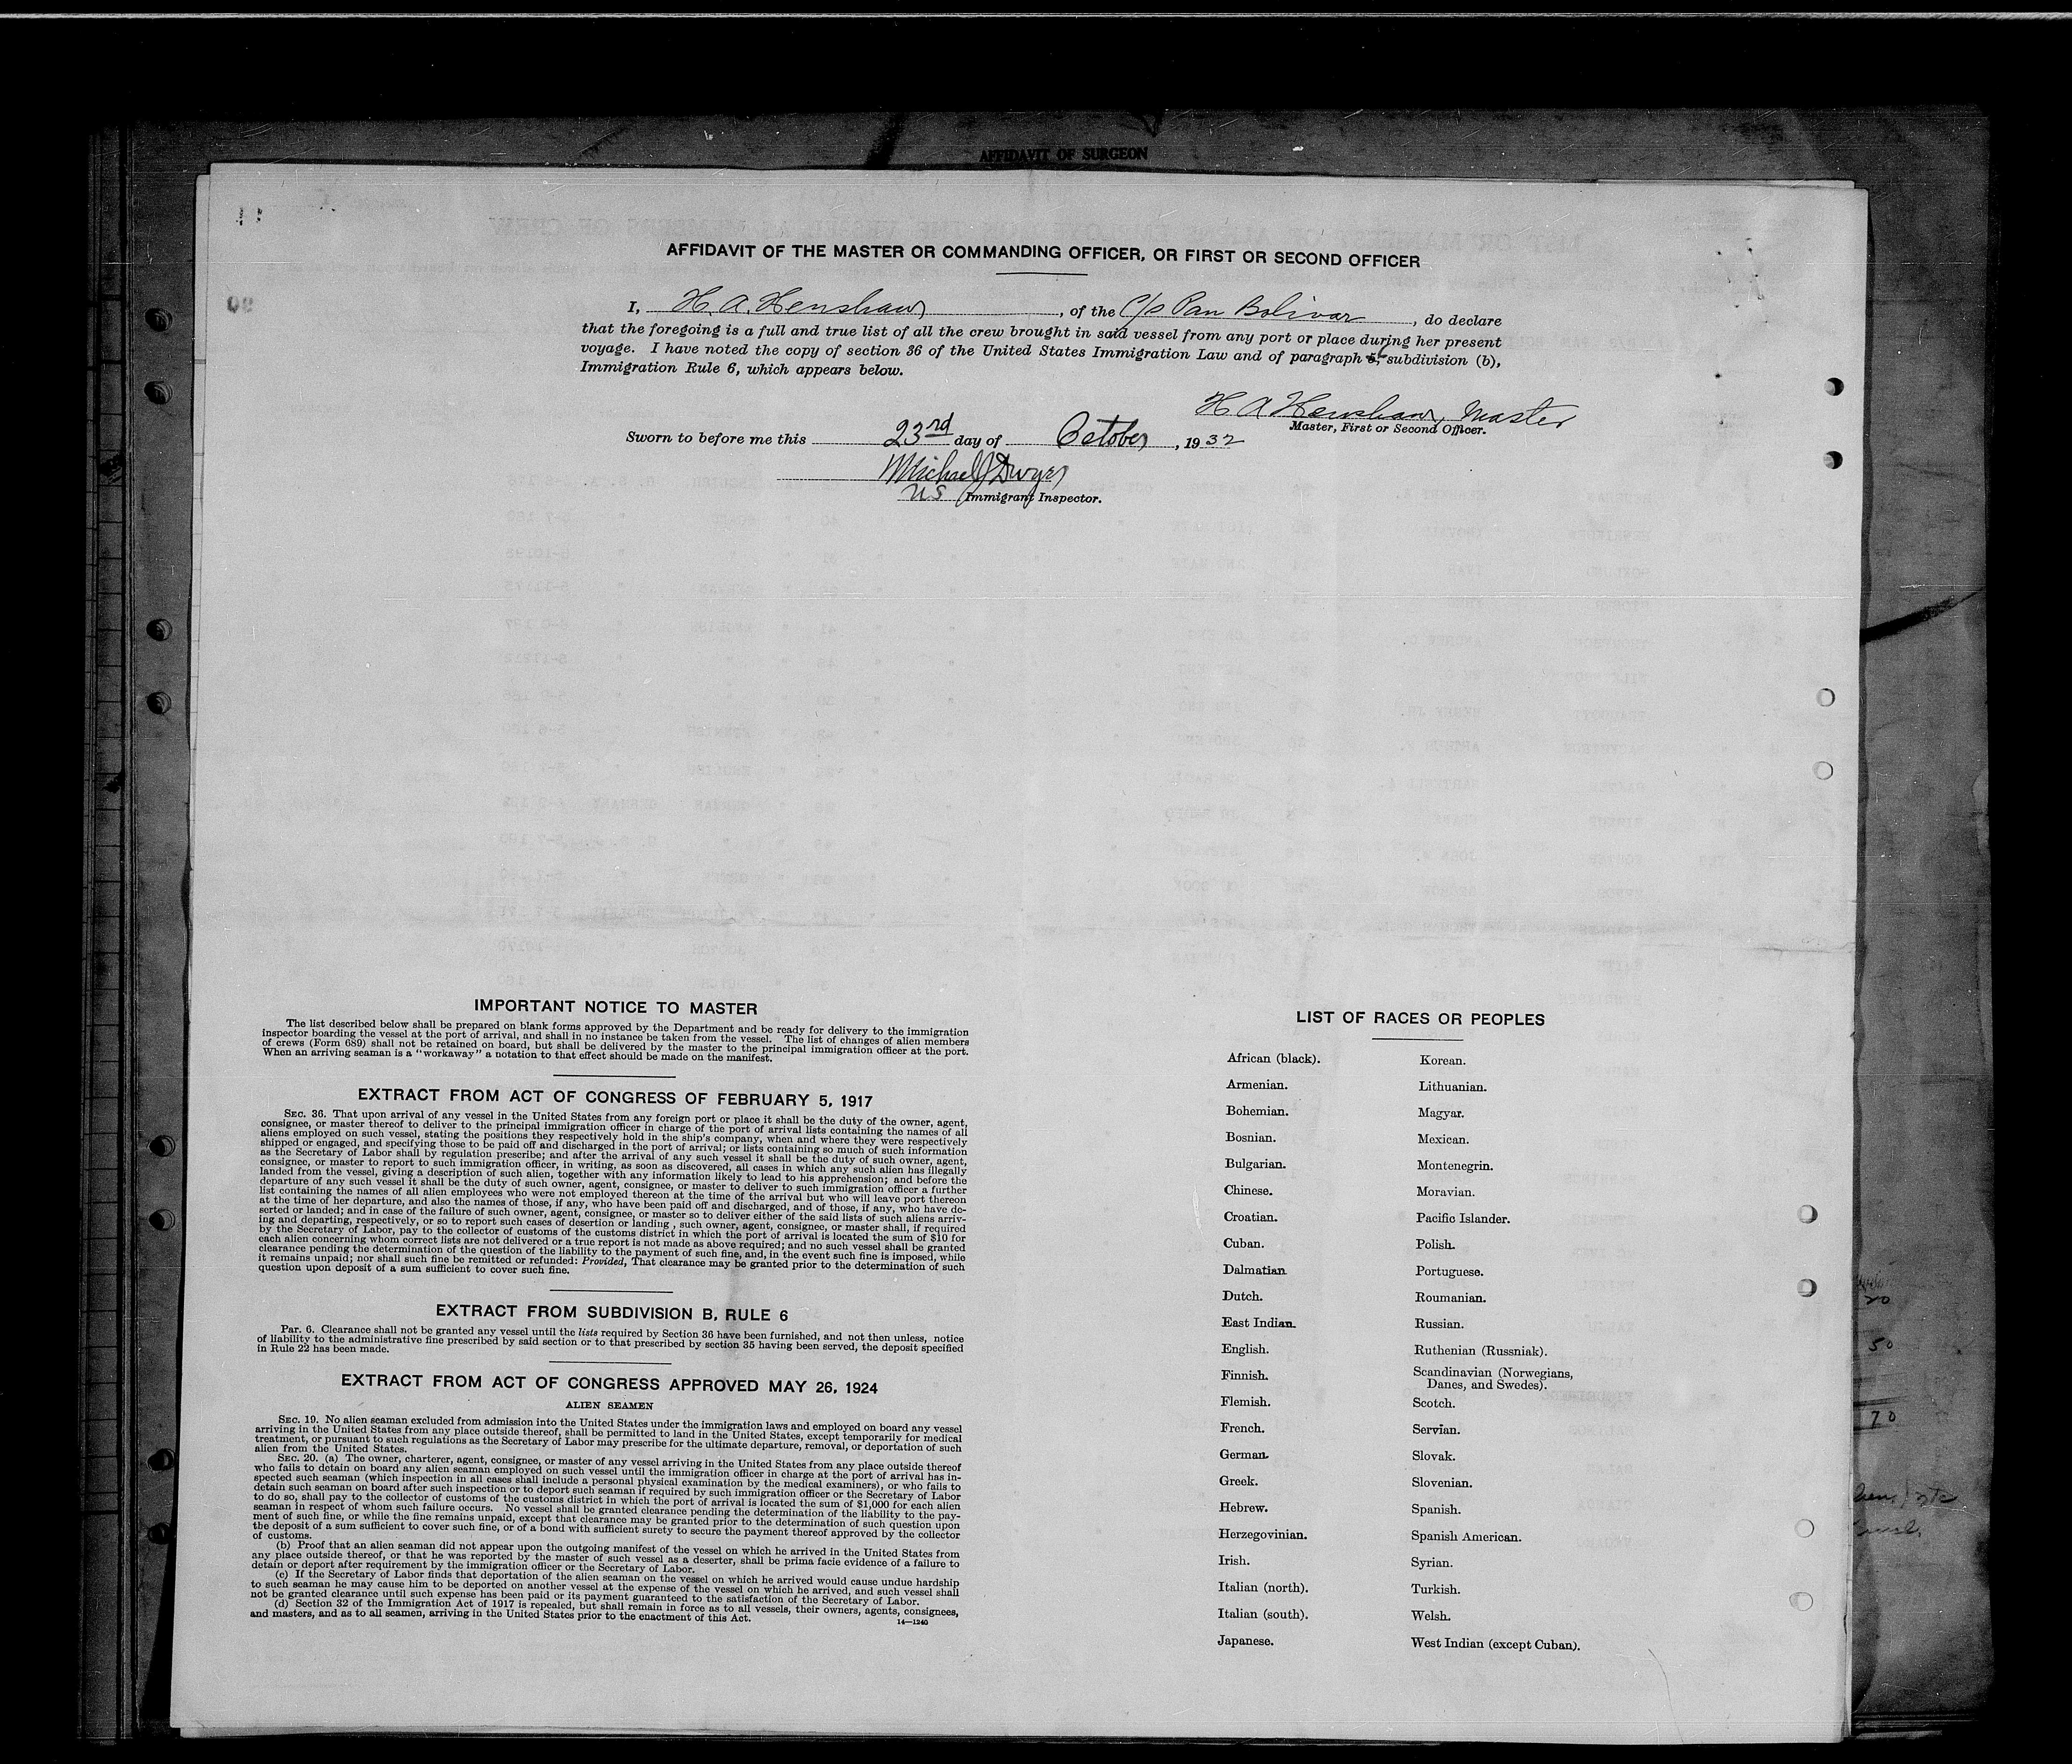 AFFIDAVIT OF SURGEON
AFFIDAVIT OF THE MASTER OR COMMANDING OFFICER, OR FIRST OR SECOND OFFICER
I, H. A. Henshaw, of the C/s Pan Bolivar, do declare
that the foregoing is a full and true list of all the crew brought in said vessel from any port or place during her present
voyage. I have noted the copy of section 36 of the United States Immigration Law and of paragraph 6, subdivision (b),
Immigration Rule 6, which appears below.
H A Henshaw, Master
Master, First or Second Officer.
Sworn to before me this 23rd day of October, 1932
Michael J Dwyer
US Immigrant Inspector.
IMPORTANT NOTICE TO MASTER
The list described below shall be prepared on blank forms approved by the Department and be ready for delivery to the immigration
inspector boarding the vessel at the port of arrival, and shall in no instance be taken from the vessel. The list of changes of alien members
of crews (Form 689) shall not be retained on board, but shall be delivered by the master to the principal immigration officer at the port.
When an arriving seaman is a "workaway" a notation to that effect should be made on the manifest.
EXTRACT FROM ACT OF CONGRESS OF FEBRUARY 5, 1917
SEC. 36. That upon arrival of any vessel in the United States from any foreign port or place it shall be the duty of the owner, agent,
consignee, or master thereof to deliver to the principal immigration officer in charge of the port of arrival lists containing the names of all
aliens employed on such vessel, stating the positions they respectively hold in the ship's company, when and where they were respectively
shipped or engaged, and specifying those to be paid off and discharged in the port of arrival; or lists containing so much of such information
as the Secretary of Labor shall by regulation prescribe; and after the arrival of any such vessel it shall be the duty of such owner, agent,
consignee, or master to report to such immigration officer, in writing, as soon as discovered, all cases in which any such alien has illegally
landed from the vessel, giving a description of such alien, together with any information likely to lead to his apprehension; and before the
departure of any such vessel it shall be the duty of such owner, agent, consignee, or master to deliver to such immigration officer a further
list containing the names of all alien employees who were not employed thereon at the time of the arrival but who will leave port thereon
at the time of her departure, and also the names of those, if any, who have been paid off and discharged, and of those, if any, who have de-
serted or landed; and in case of the failure of such owner, agent, consignee, or master so to deliver either of the said lists of such aliens arriv-
ing and departing, respectively, or so to report such cases of desertion or landing , such owner, agent, consignee, or master shall, if required
by the Secretary of Labor, pay to the collector of customs of the customs district in which the port of arrival is located the sum of $10 for
each alien concerning whom correct lists are not delivered or a true report is not made as above required; and no such vessel shall be granted
clearance pending the determination of the question of the liability to the payment of such fine, and, in the event such fine is imposed, while
it remains unpaid; nor shall such fine be remitted or refunded: Provided, That clearance may be granted prior to the determination of such
question upon deposit of a sum sufficient to cover such fine.
EXTRACT FROM SUBDIVISION B, RULE 6
Par. 6. Clearance shall not be granted any vessel until the lists required by Section 36 have been furnished, and not then unless, notice
of liability to the administrative fine prescribed by said section or to that prescribed by section 35 having been served, the deposit specified
in Rule 22 has been made.
EXTRACT FROM ACT OF CONGRESS APPROVED MAY 26, 1924
ALIEN SEAMEN
SEC. 19. No alien seaman excluded from admission into the United States under the immigration laws and employed on board any vessel
arriving in the United States from any place outside thereof, shall be permitted to land in the United States, except temporarily for medical
treatment, or pursuant to such regulations as the Secretary of Labor may prescribe for the ultimate departure, removal, or deportation of such
alien from the United States.
SEC. 20. (a) The owner, charterer, agent, consignee, or master of any vessel arriving in the United States from any place outside thereof
who fails to detain on board any alien seaman employed on such vessel until the immigration officer in charge at the port of arrival has in-
spected such seaman (which inspection in all cases shall include a personal physical examination by the medical examiners), or who fails to
detain such seaman on board after such inspection or to deport such seaman if required by such immigration officer or the Secretary of Labor
to do so, shall pay to the collector of customs of the customs district in which the port of arrival is located the sum of $1,000 for each alien
seaman in respect of whom such failure occurs. No vessel shall be granted clearance pending the determination of the liability to the pay-
ment of such fine, or while the fine remains unpaid, except that clearance may be granted prior to the determination of such question upon
the deposit of a sum sufficient to cover such fine, or of a bond with sufficient surety to secure the payment thereof approved by the collector
of customs.
(b) Proof that an alien seaman did not appear upon the outgoing manifest of the vessel on which he arrived in the United States from
any place outside thereof, or that he was reported by the master of such vessel as a deserter, shall be prima facie evidence of a failure to
detain or deport after requirement by the immigration officer or the Secretary of Labor.
(c) If the Secretary of Labor finds that deportation of the alien seaman on the vessel on which he arrived would cause undue hardship
to such seaman he may cause him to be deported on another vessel at the expense of the vessel on which he arrived, and such vessel shall
not be granted clearance until such expense has been paid or its payment guaranteed to the satisfaction of the Secretary of Labor.
(d) Section 32 of the Immigration Act of 1917 is repealed, but shall remain in force as to all vessels, their owners, agents, consignees,
and masters, and as to all seamen, arriving in the United States prior to the enactment of this Act.
14—1240
LIST OF RACES OR PEOPLES
African (black).
Armenian.
Bohemian.
Bosnian.
Bulgarian.
Chinese.
Croatian.
Cuban.
Dalmatian.
Dutch.
East Indian.
English.
Finnish.
Flemish.
French.
German.
Greek.
Hebrew.
Herzegovinian.
Irish.
Italian (north).
Italian (south).
Japanese.
Korean.
Lithuanian.
Magyar.
Mexican.
Montenegrin.
Moravian.
Pacific Islander.
Polish.
Portuguese.
Roumanian.
Russian.
Ruthenian (Russniak).
Scandinavian (Norwegians,
Danes, and Swedes).
Scotch.
Servian.
Slovak.
Slovenian.
Spanish.
Spanish American.
Syrian.
Turkish.
Welsh.
West Indian (except Cuban).
20
50
70